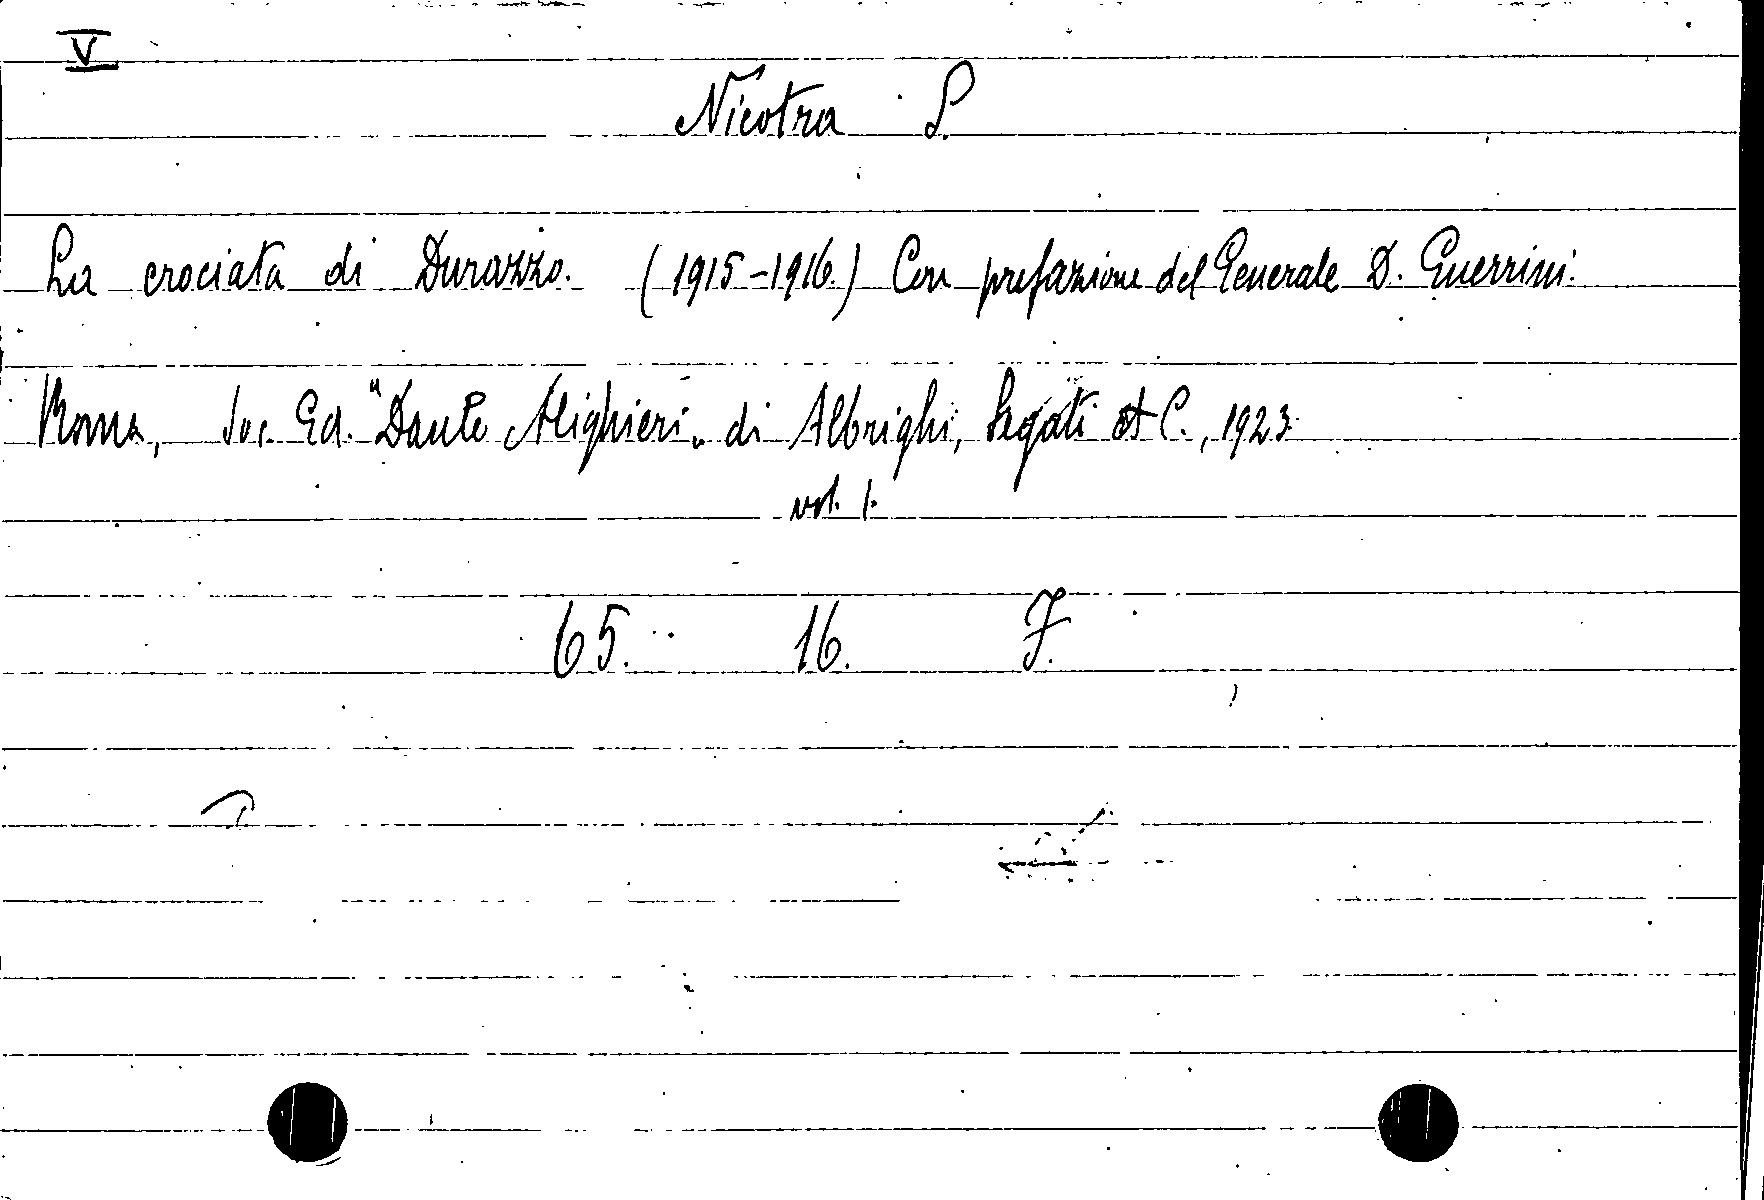 V
Nicotra S.
La crociata di Durazzo. (1915-1916.) Con prefazione del Generale D. Guerrini.
Roma, Soc. Ed. "Dante Alighieri" di Albrighi, Segati et C., 1923
vol. 1.
65. 16. F.